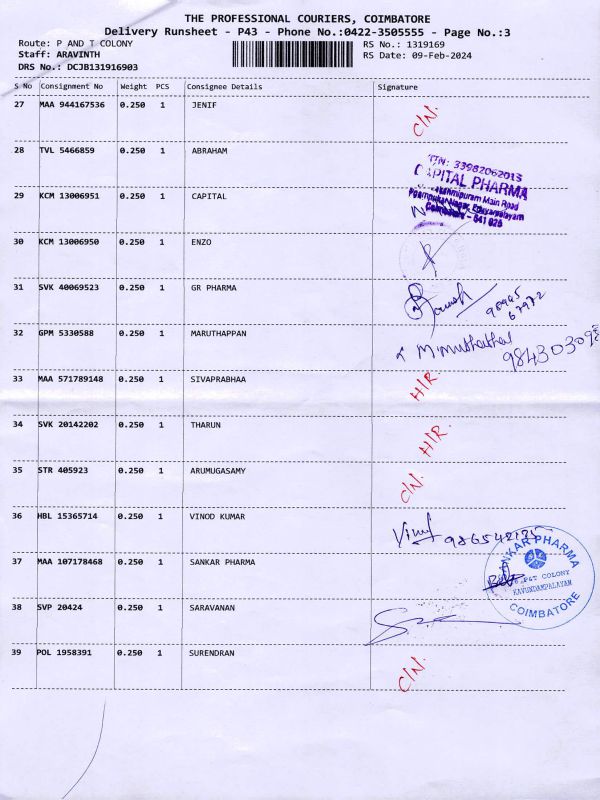 THE PROFESSIONAL COURIERS, COIMBATORE
Delivery Runsheet - P43 - Phone No.:0422-3505555 - Page No.:3
Route: P AND T COLONY RS No.: 1319169
Staff: ARAVINTH RS Date: 09-Feb-2024
DRS No.: DCJB131916903
S No Consignment No Weight PCS Consignee Details Signature
27 MAA 944167536 0.250 1 JENIF C/N.
28 TVL 5466859 0.250 1 ABRAHAM
TIN: 33982062013
CAPITAL PHARMA
29 KCM 13006951 0.250 1 CAPITAL
Main Road
Coimbatore - 641 025
30 KCM 13006950 0.250 1 ENZO
31 SVK 40069523 0.250 1 GR PHARMA
98945
67972
32 GPM 5330588 0.250 1 MARUTHAPPAN
33 MAA 571789148 0.250 1 SIVAPRABHAA H/R.
34 SVK 20142202 0.250 1 THARUN H/R.
35 STR 405923 0.250 1 ARUMUGASAMY C/N.
36 HBL 15365714 0.250 1 VINOD KUMAR
37 MAA 107178468 0.250 1 SANKAR PHARMA
NKAR PHARMA
P&T COLONY
KAVUNDAMPALAYAM
COIMBATORE
38 SVP 20424 0.250 1 SARAVANAN
39 POL 1958391 0.250 1 SURENDRAN C/N.